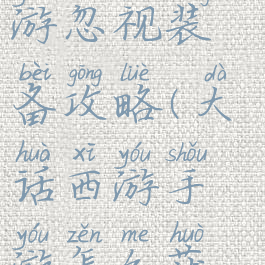 游忽视装
bèi gōng lüè dà
备攻略(大
huà xī yóu shǒu
话西游手
yóu zěn me huò
游怎么获